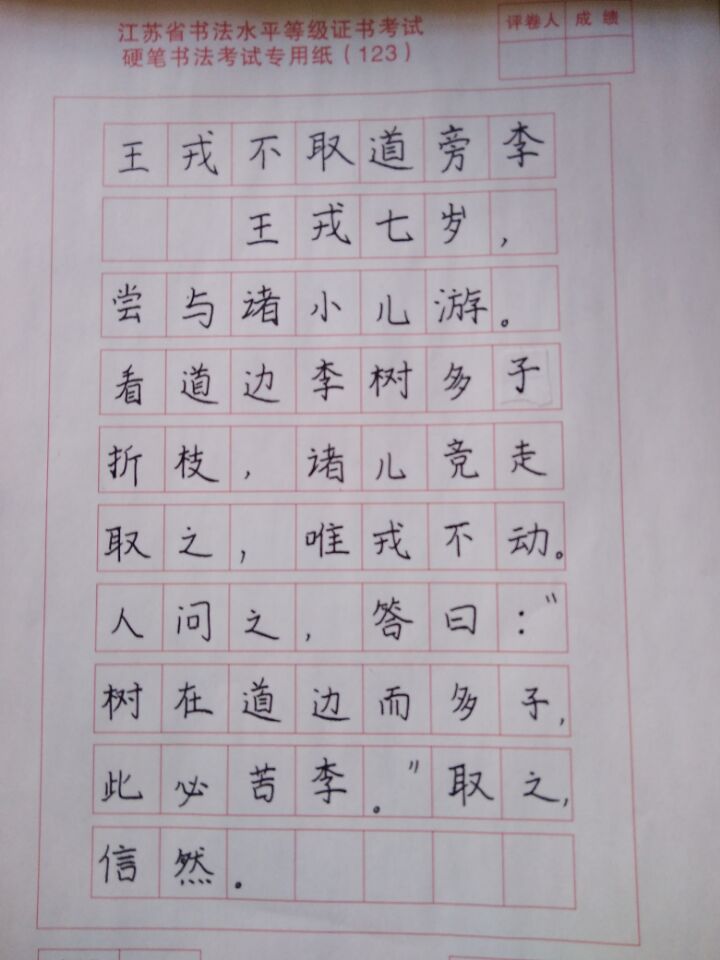 江苏省书法水平等级证书考试
硬笔书法考试专用纸（123）
评卷人 成绩
王戎不取道旁李
王戎七岁，
尝与诸小儿游。
看道边李树多子
折枝，诸儿竞走
取之，唯戎不动。
人问之，答曰：“
树在道边而多子，
此必苦李。”取之，
信然。